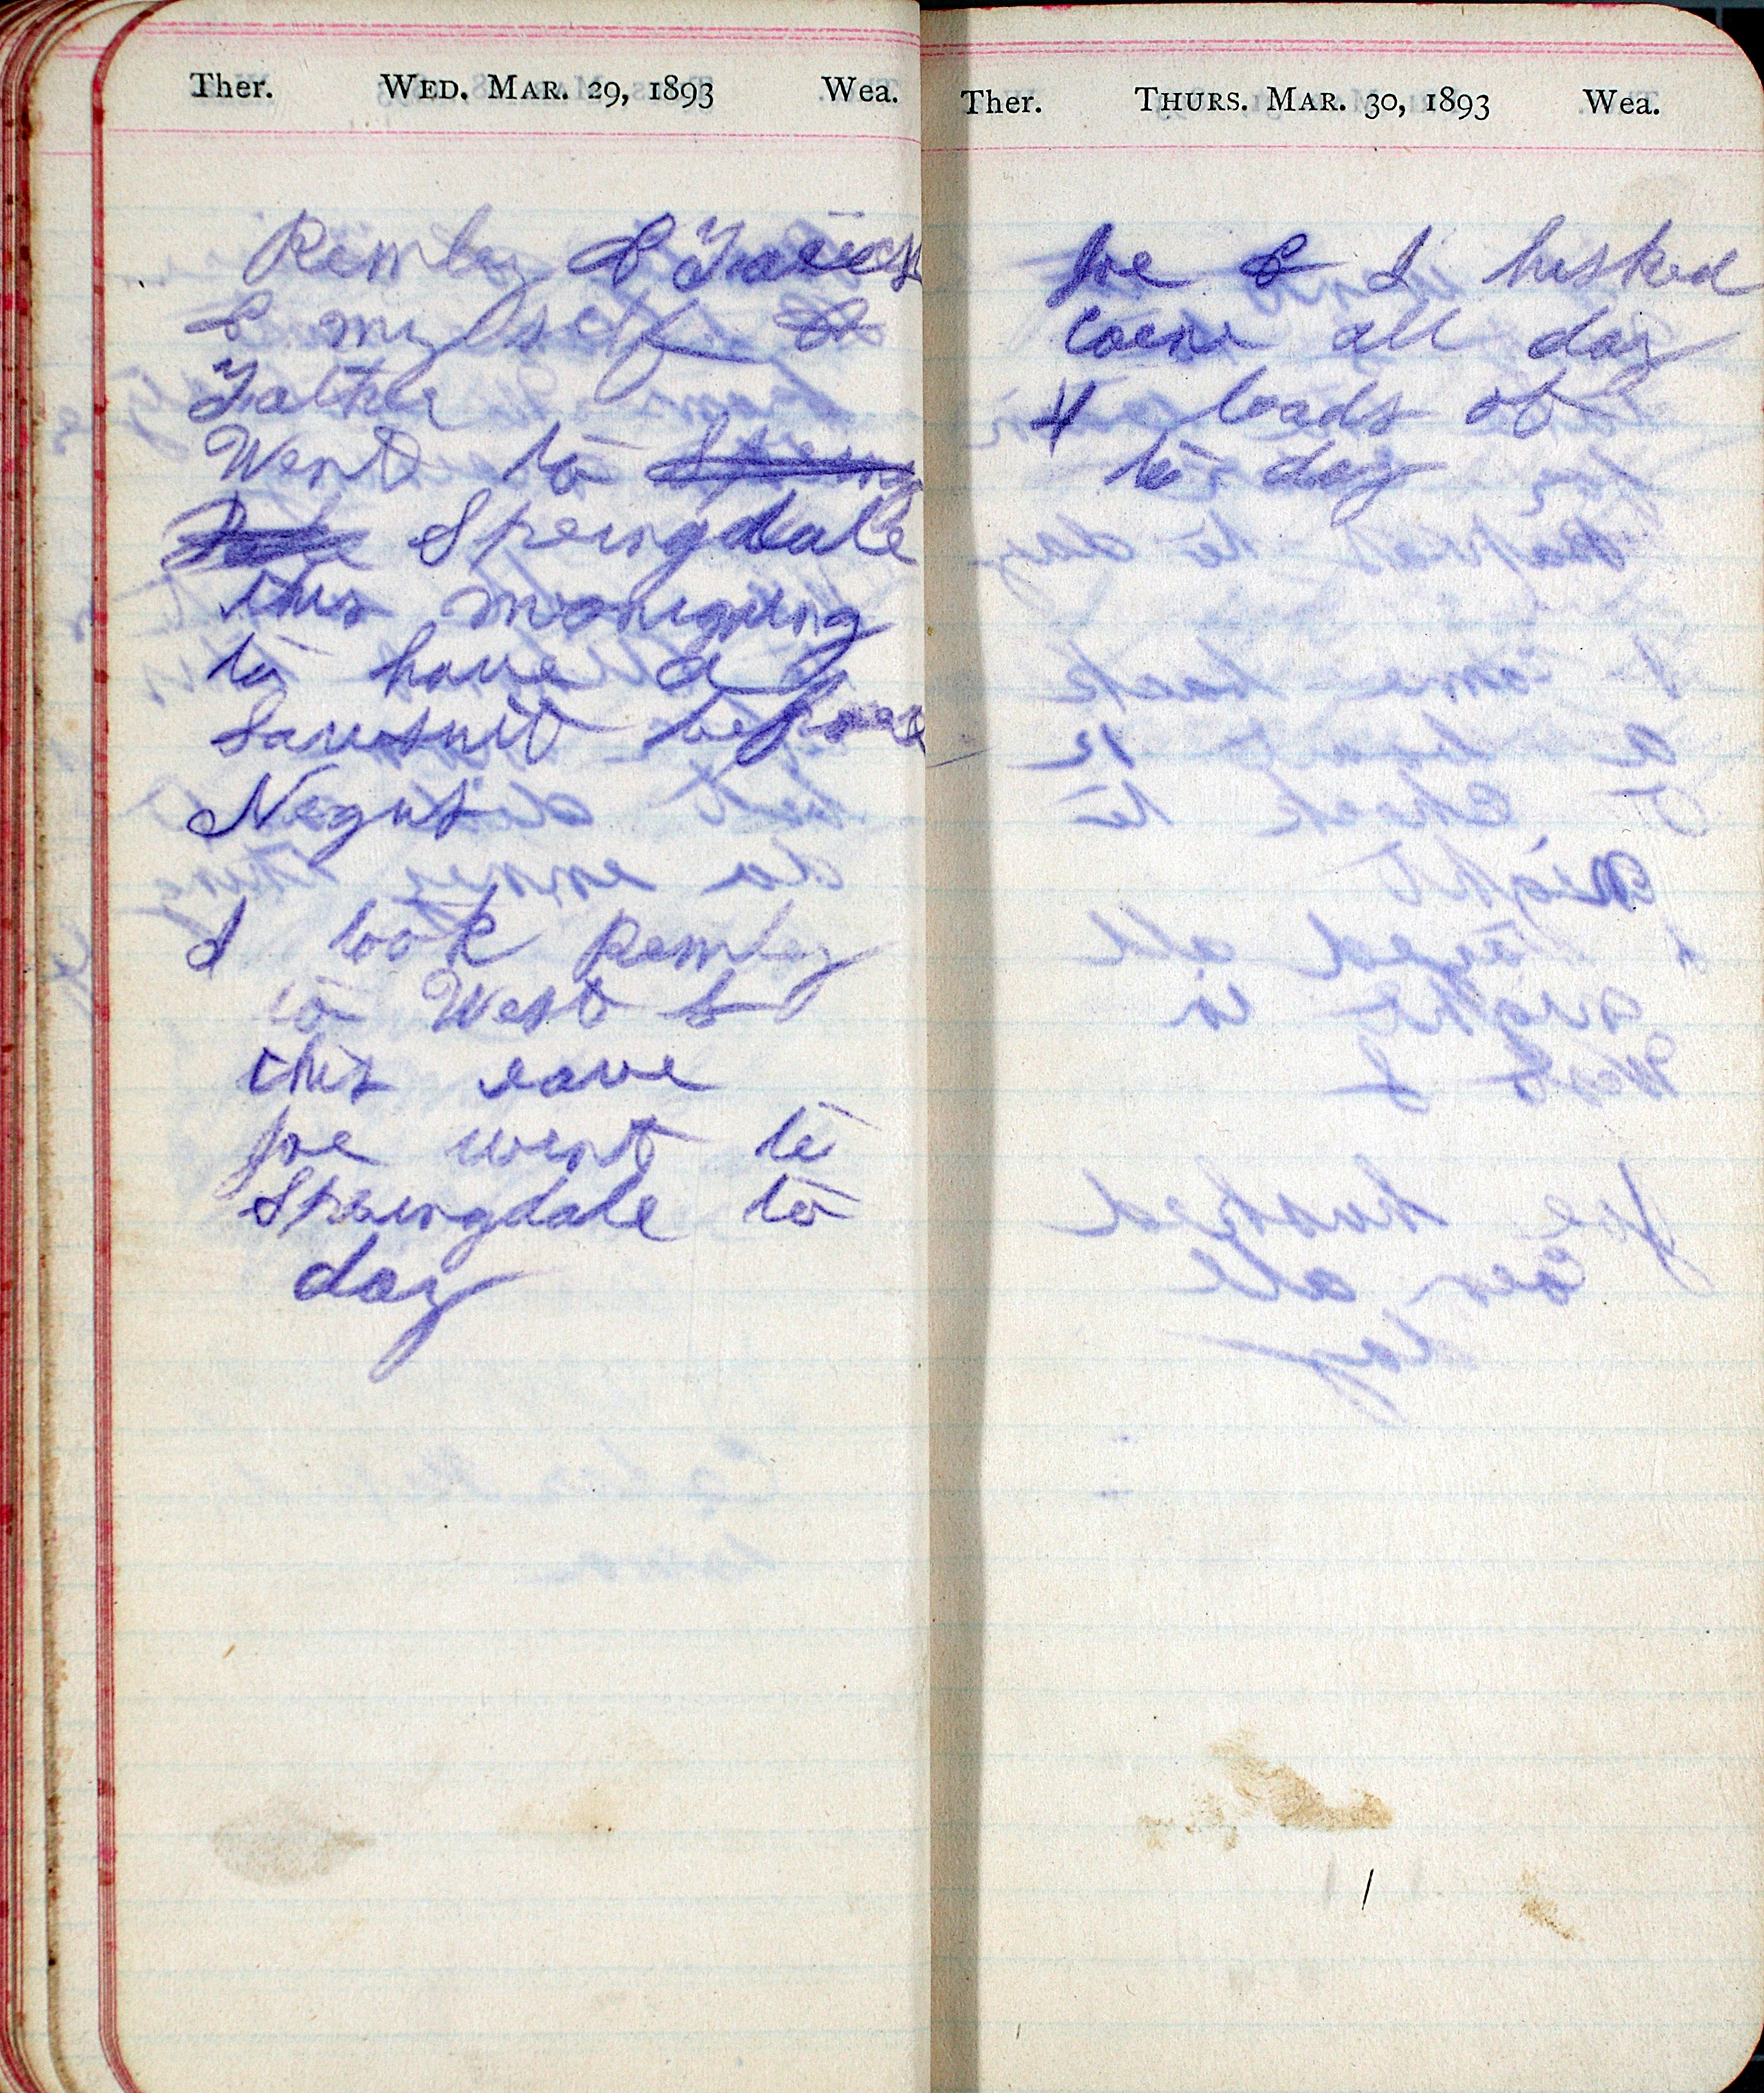 Ther. WED. MAR. 29, 1893 Wea.
Remley &
& my self &
Father
Went to Spring
Springdale
this moriging
to have a
Lawsuit before
Negus
I took Remley
to West b
this eave
Joe went to
Springdale to
day
Ther. THURS. MAR. 30, 1893 Wea.
Joe & I husked
corn all day
4 loads ob
to day